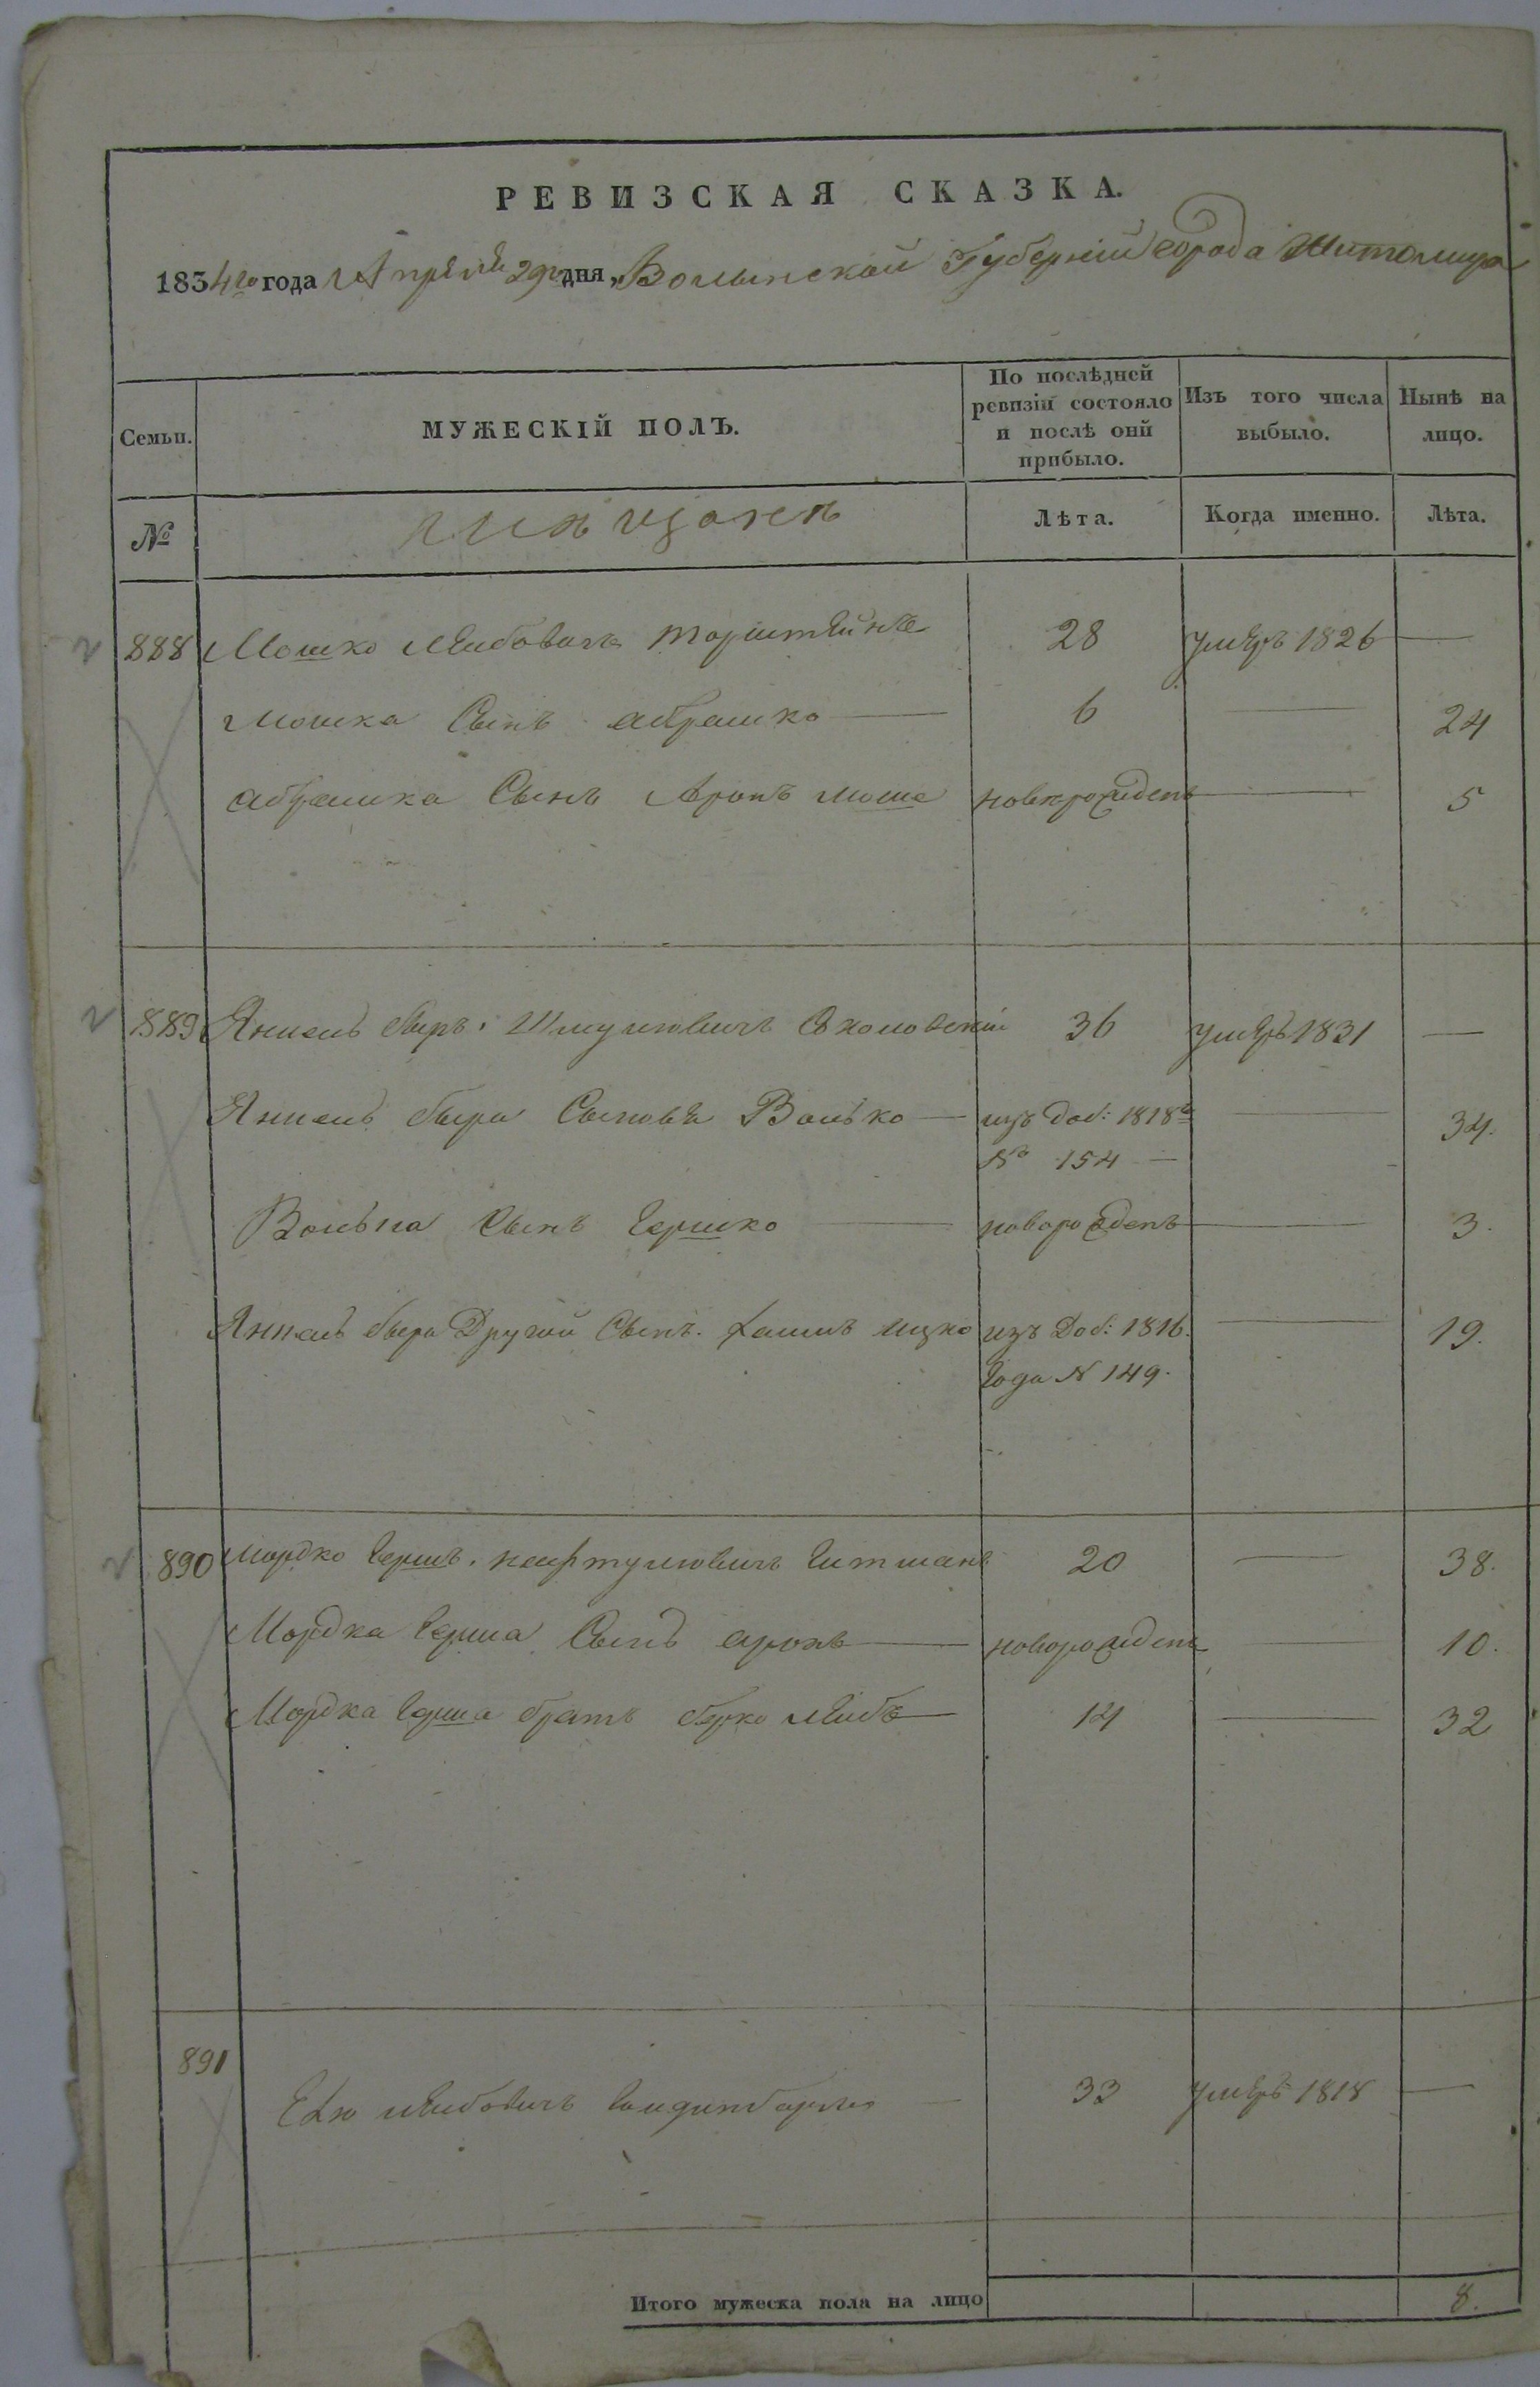 РЕВИЗСКАЯ СКАЗКА.
1834го года Апреля 29го дня, Волынской Губерніи города Житомира
Семьи. МУЖЕСКІЙ ПОЛЪ. По послѣдней ревизіи состояло и послѣ оній прибыло. Изъ того числа выбыло. Нынѣ на лицо.
№ Мѣщанъ Лѣта. Когда именно. Лѣта.
888 Мошко Лейбовичъ Торштейнъ 28 умеръ 1826 —
Мошка Сынъ абрашко — 6 — 24
абрашка Сынъ Аронъ моше новорожденъ — 5
889 Янкель беръ Шмулиовичъ 36 умеръ 1831 —
Янкель бера Сыновья Волько — изъ Доб: 1818 — 34.
№ 154 —
Волька Сынъ Гершко — новорожденъ — 3.
Янкель бера Другой Сынъ Хаимъ ицко изъ Доб: 1816. — 19.
Года N 149.
890 Мордко Гершъ Нафтулиовичъ Гитманъ 20 — 38.
Мордка Герша Сынъ аронъ — новорожденъ — 10.
Мордка Герша братъ берко лейбъ — 14 — 32
891 лейбовичъ 33 умеръ 1818 —
Итого мужеска пола на лицо 8.